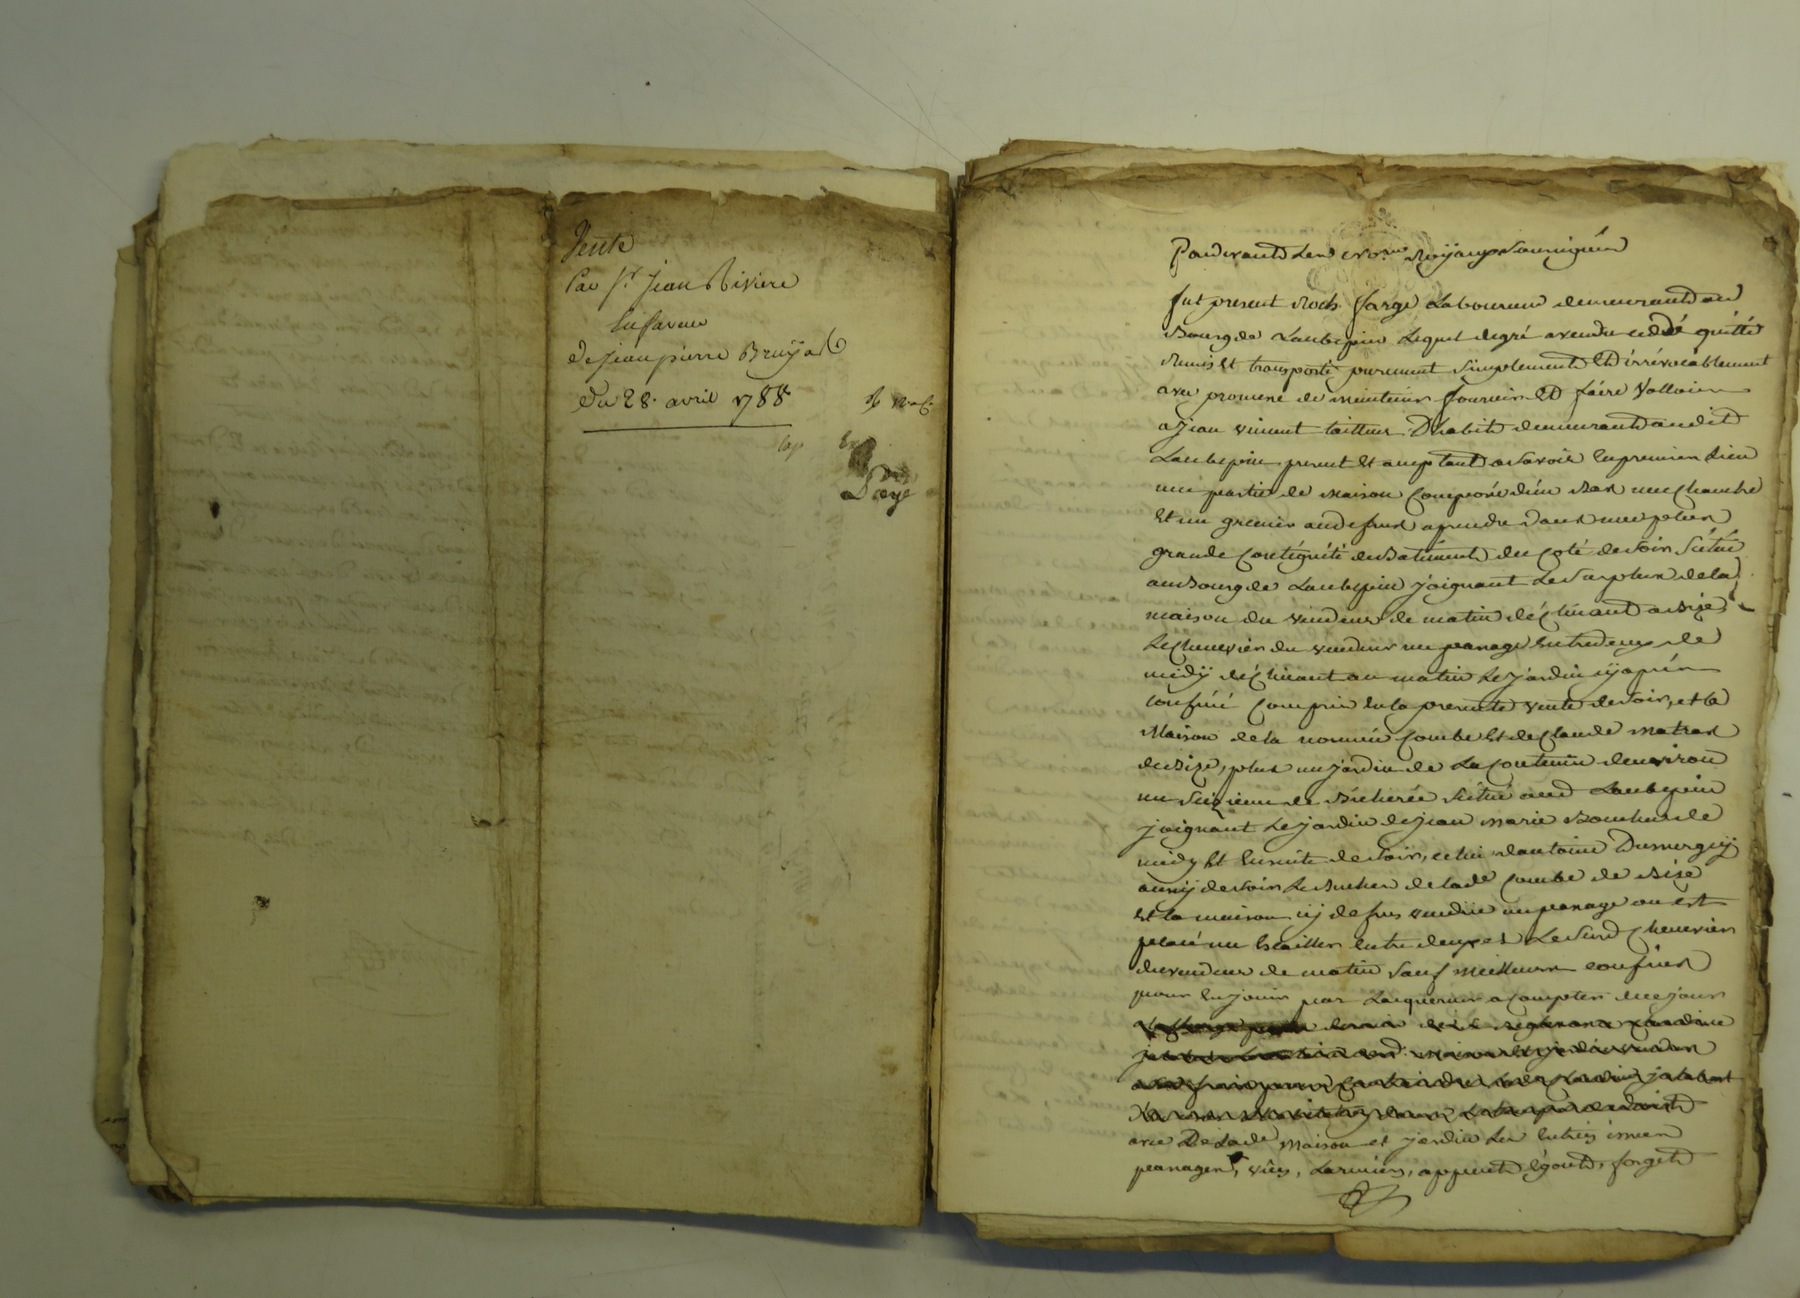 Vente
Par Sr. Jean Riviere
En faveur
de jean pierre Bruyas
Du 28. avril 1788
payé
Pardevant Les no.res Royaux Soussignés
fut present Roch farge Laboureur demeurant au
Bourg de Laubepin Lequel de gré a vendu cedé quitté
Remis Et transporté purement Simplement Et irrévocablement
avec promesse de maintenir fournir Et faire Valloir
a jean vincent tailleur D'habits demeurant audit
Laubepin present Et acceptant a Savoir En premier Lieu
une partie de Maison Composée d'un Bas une Chambre
Et un grenier au dessus a prendre dans une plus
grande Contiguité de Batiment du Coté de Soir Situé
au Bourg de Laubepin joignant Le Surplus de la
maison du vendeur de matin déClinant a Bize,
Le Chenevier du vendeur un peanage Entredeux de
midÿ déClinant au matin Le jardin cy après
Confiné Compris En la presente vente de Soir, et la
Maison de la nommée Combe Et de Claude matras
de Bize, plus un jardin de La Contenue d'environ
un Seizieme de Bicherée Situé aud Laubepin
joignant Le jardin de jean marie Boucher de
midy Et Ensuite de Soir, celui d'antoine Dumergÿ
aussÿ de Soir Le Bucher de lade Combe de Bize
Et la maison cÿ dessus vendue un peanage ou est
placé un Escallier Entre deux Et Le Surd Chenevier
du vendeur de matin Sauf meilleurs confins
pour En jouir par L'acquereur a Compter de ce jour
avec De Lade Maison et jardin Les Entrées issues
peanages, vües, Larmiers, appents Egouts, forgets